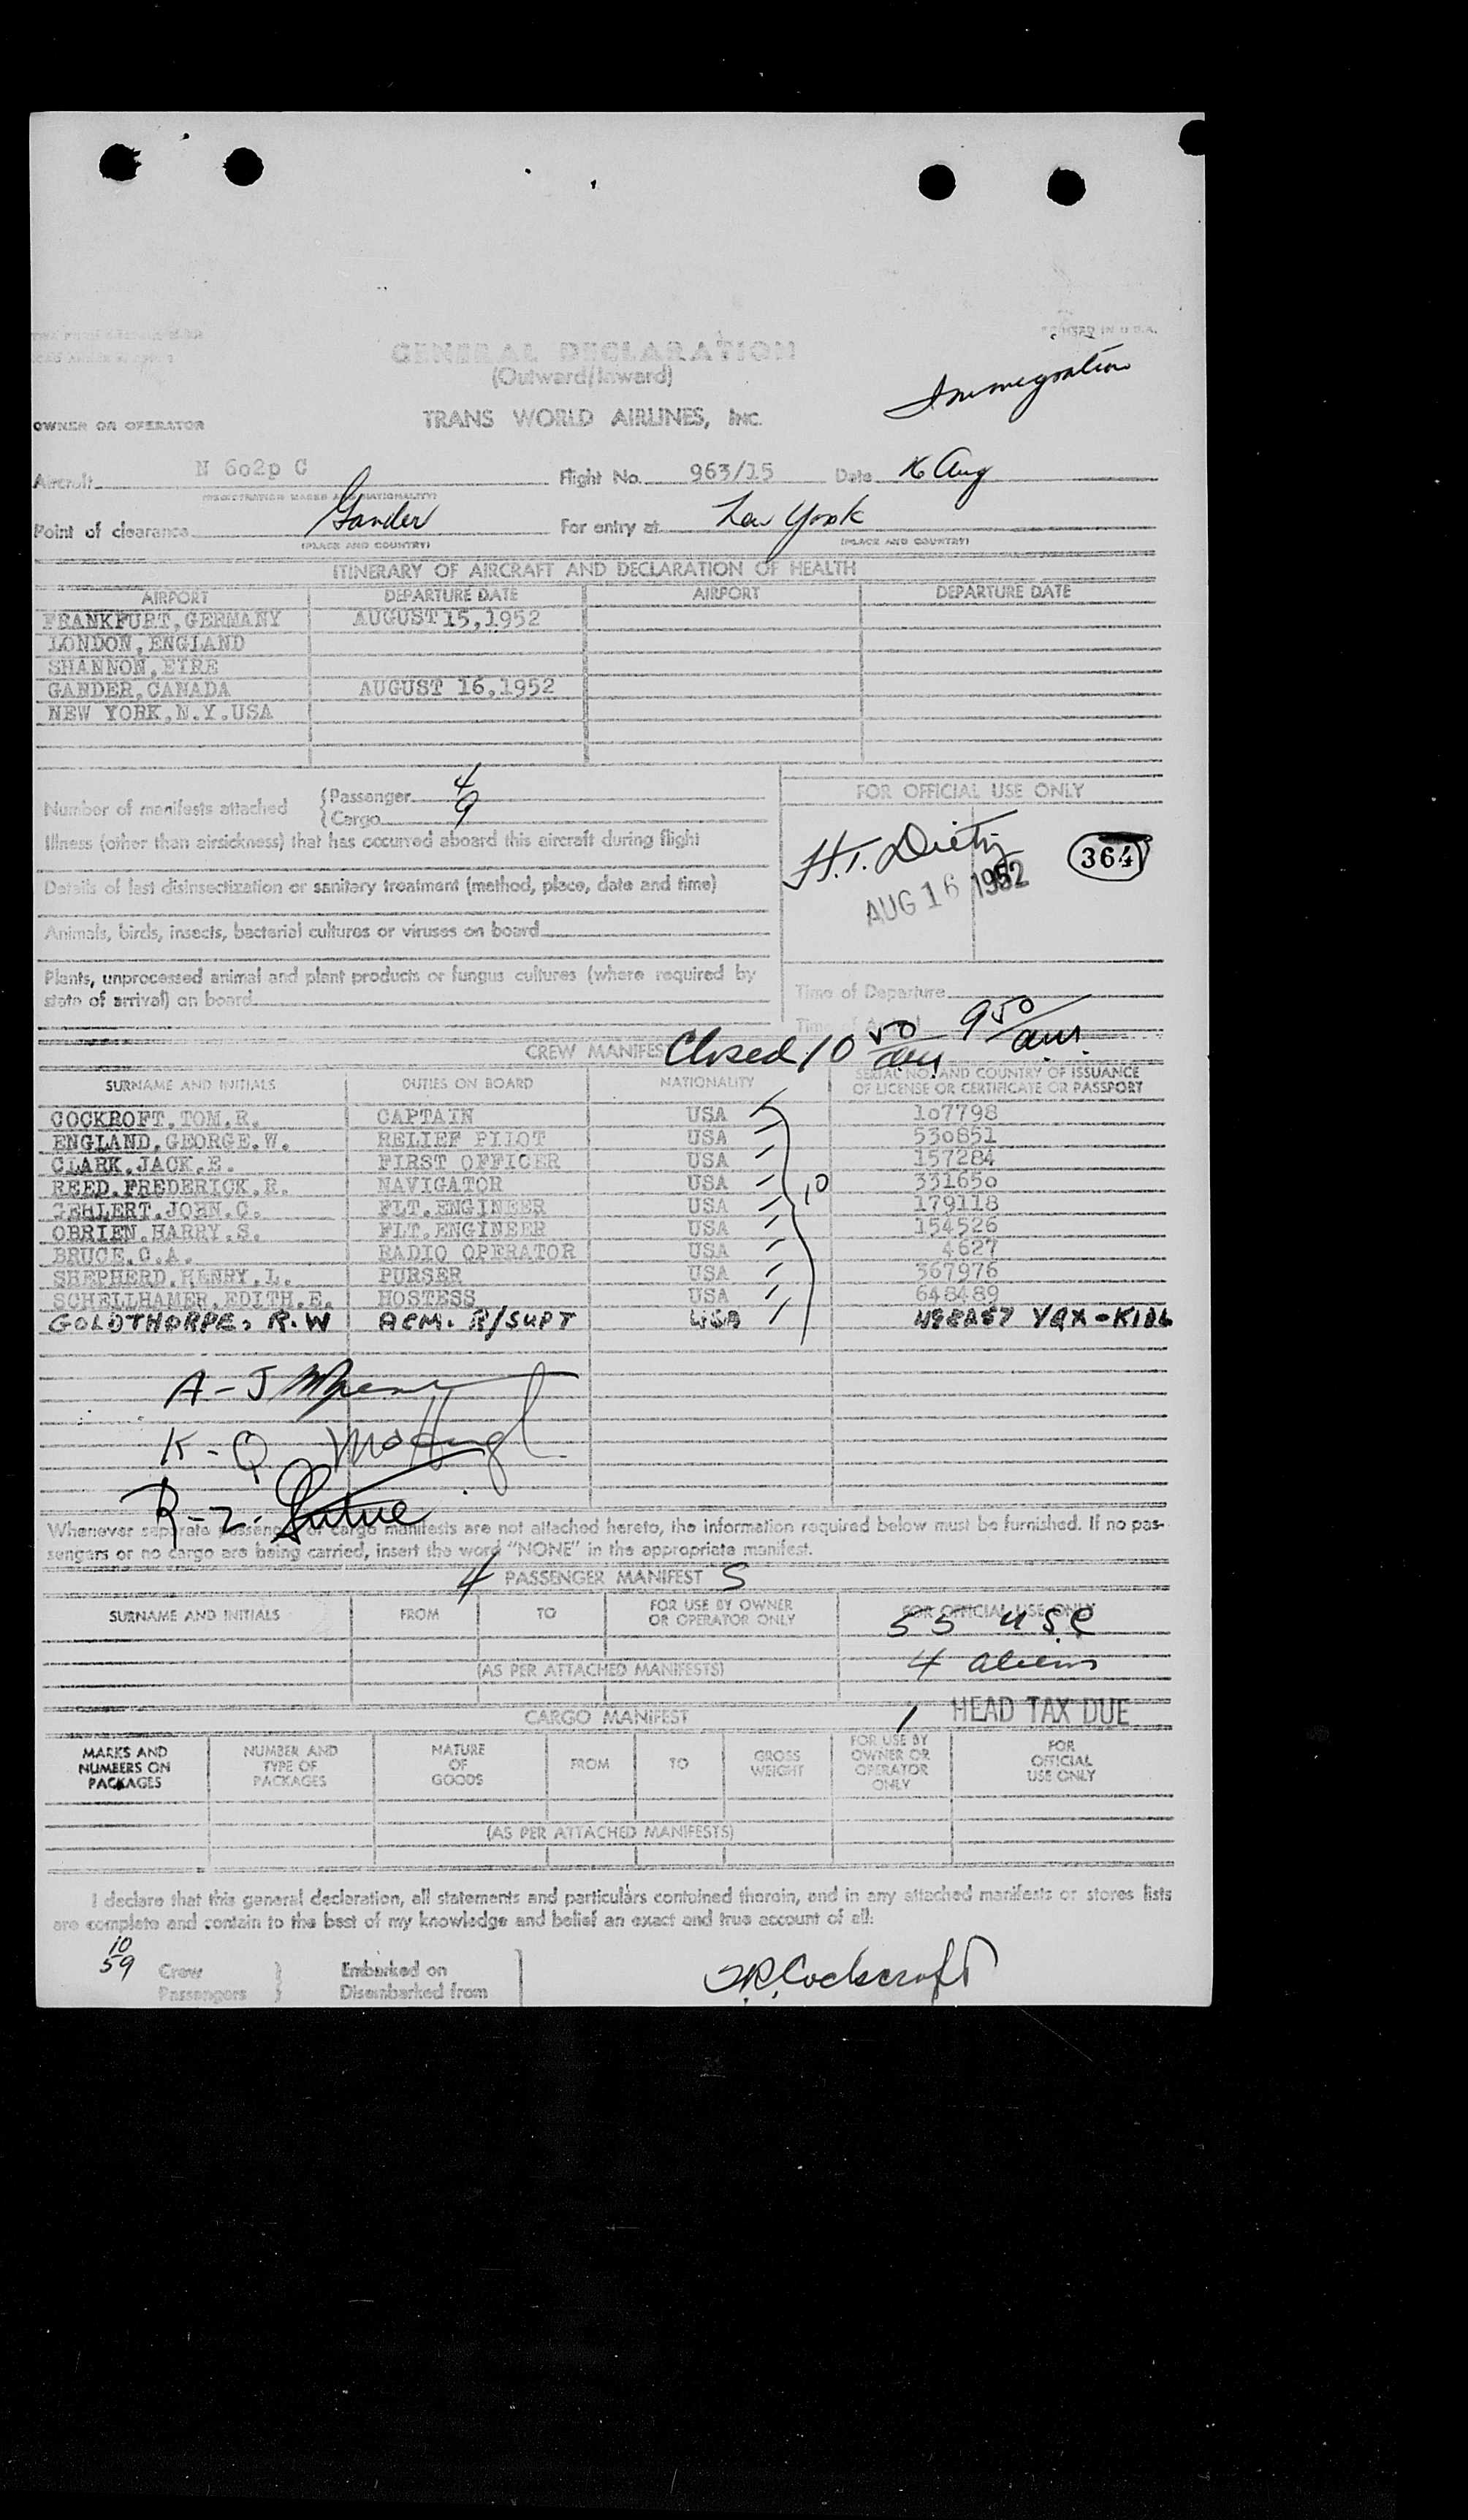 PRINTED IN U.S.A.
GENERAL DECLARATION
(Outward/Inward)
Immigration
OWNER OR OPERATOR TRANS WORLD AIRLINES, INC.
Aircraft N 602p C Flight No. 963/15 Date 16 Aug
(REGISTRATION MARKS AND NATIONALITY)
Point of clearance Gander For entry at New York
(PLACE AND COUNTRY) (PLACE AND COUNTRY)
ITINERARY OF AIRCRAFT AND DECLARATION OF HEALTH
AIRPORT DEPARTURE DATE AIRPORT DEPARTURE DATE
FRANKFURT,GERMANY AUGUST 15,1952
LONDON,ENGLAND
SHANNON,EIRE
GANDER,CANADA AUGUST 16,1952
NEW YORK,N.Y.USA
Number of manifests attached
Passenger 4
Cargo 9
FOR OFFICIAL USE ONLY
Illness (other than airsickness) that has occurred aboard this aircraft during flight
H.T. Dietz
364
AUG 16 1952
Details of last disinsectization or sanitary treatment (method, place, date and time)
Animals, birds, insects, bacterial cultures or viruses on board
Plants, unprocessed animal and plant products or fungus cultures (where required by
state of arrival) on board
Time of Departure
Time of Arrival 9 50/am.
CREW MANIFEST Closed 10 50/am
SURNAME AND INITIALS DUTIES ON BOARD NATIONALITY SERIAL NO. AND COUNTRY OF ISSUANCE
OF LICENSE OR CERTIFICATE OR PASSPORT
COCKROFT.TOM.R. CAPTAIN USA 107798
ENGLAND,GEORGE.W. RELIEF PILOT USA 530851
CLARK.JACK.E. FIRST OFFICER USA 157284
REED.FREDERICK.R. NAVIGATOR USA 331650
GEHLERT.JOHN.C. FLT.ENGINEER USA 179118
OBRIEN.HARRY.S. FLT.ENGINEER USA 154526
BRUCE.C.A. RADIO OPERATOR USA 4627
SHEPHERD.HENRY.L. PURSER USA 367976
SCHELLHAMER.EDITH.E. HOSTESS USA 648489
GOLDTHORPE, R.W ACM. R/SUPT USA
10
A-J
K-Q McHugh
R-Z.
Whenever separate passenger or cargo manifests are not attached hereto, the information required below must be furnished. If no pas-
sengers or no cargo are being carried, insert the word "NONE" in the appropriate manifest.
4 PASSENGER MANIFEST S
SURNAME AND INITIALS FROM TO FOR USE BY OWNER
OR OPERATOR ONLY FOR OFFICIAL USE ONLY
55 USC
(AS PER ATTACHED MANIFESTS) 4 aliens
CARGO MANIFEST 1 HEAD TAX DUE
MARKS AND
NUMBERS ON
PACKAGES
NUMBER AND
TYPE OF
PACKAGES
NATURE
OF
GOODS
FROM
TO
GROSS
WEIGHT
FOR USE BY
OWNER OR
OPERATOR
ONLY
FOR
OFFICIAL
USE ONLY
(AS PER ATTACHED MANIFESTS)
I declare that this general declaration, all statements and particulars contained therein, and in any attached manifests or stores lists
are complete and contain to the best of my knowledge and belief an exact and true account of all:
10 Crew Embarked on
59 Passengers Disembarked from
T.R. Cockcroft